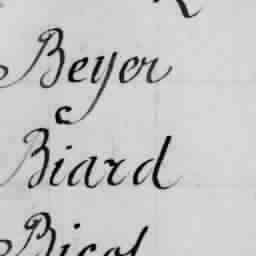 Beyer
Biard